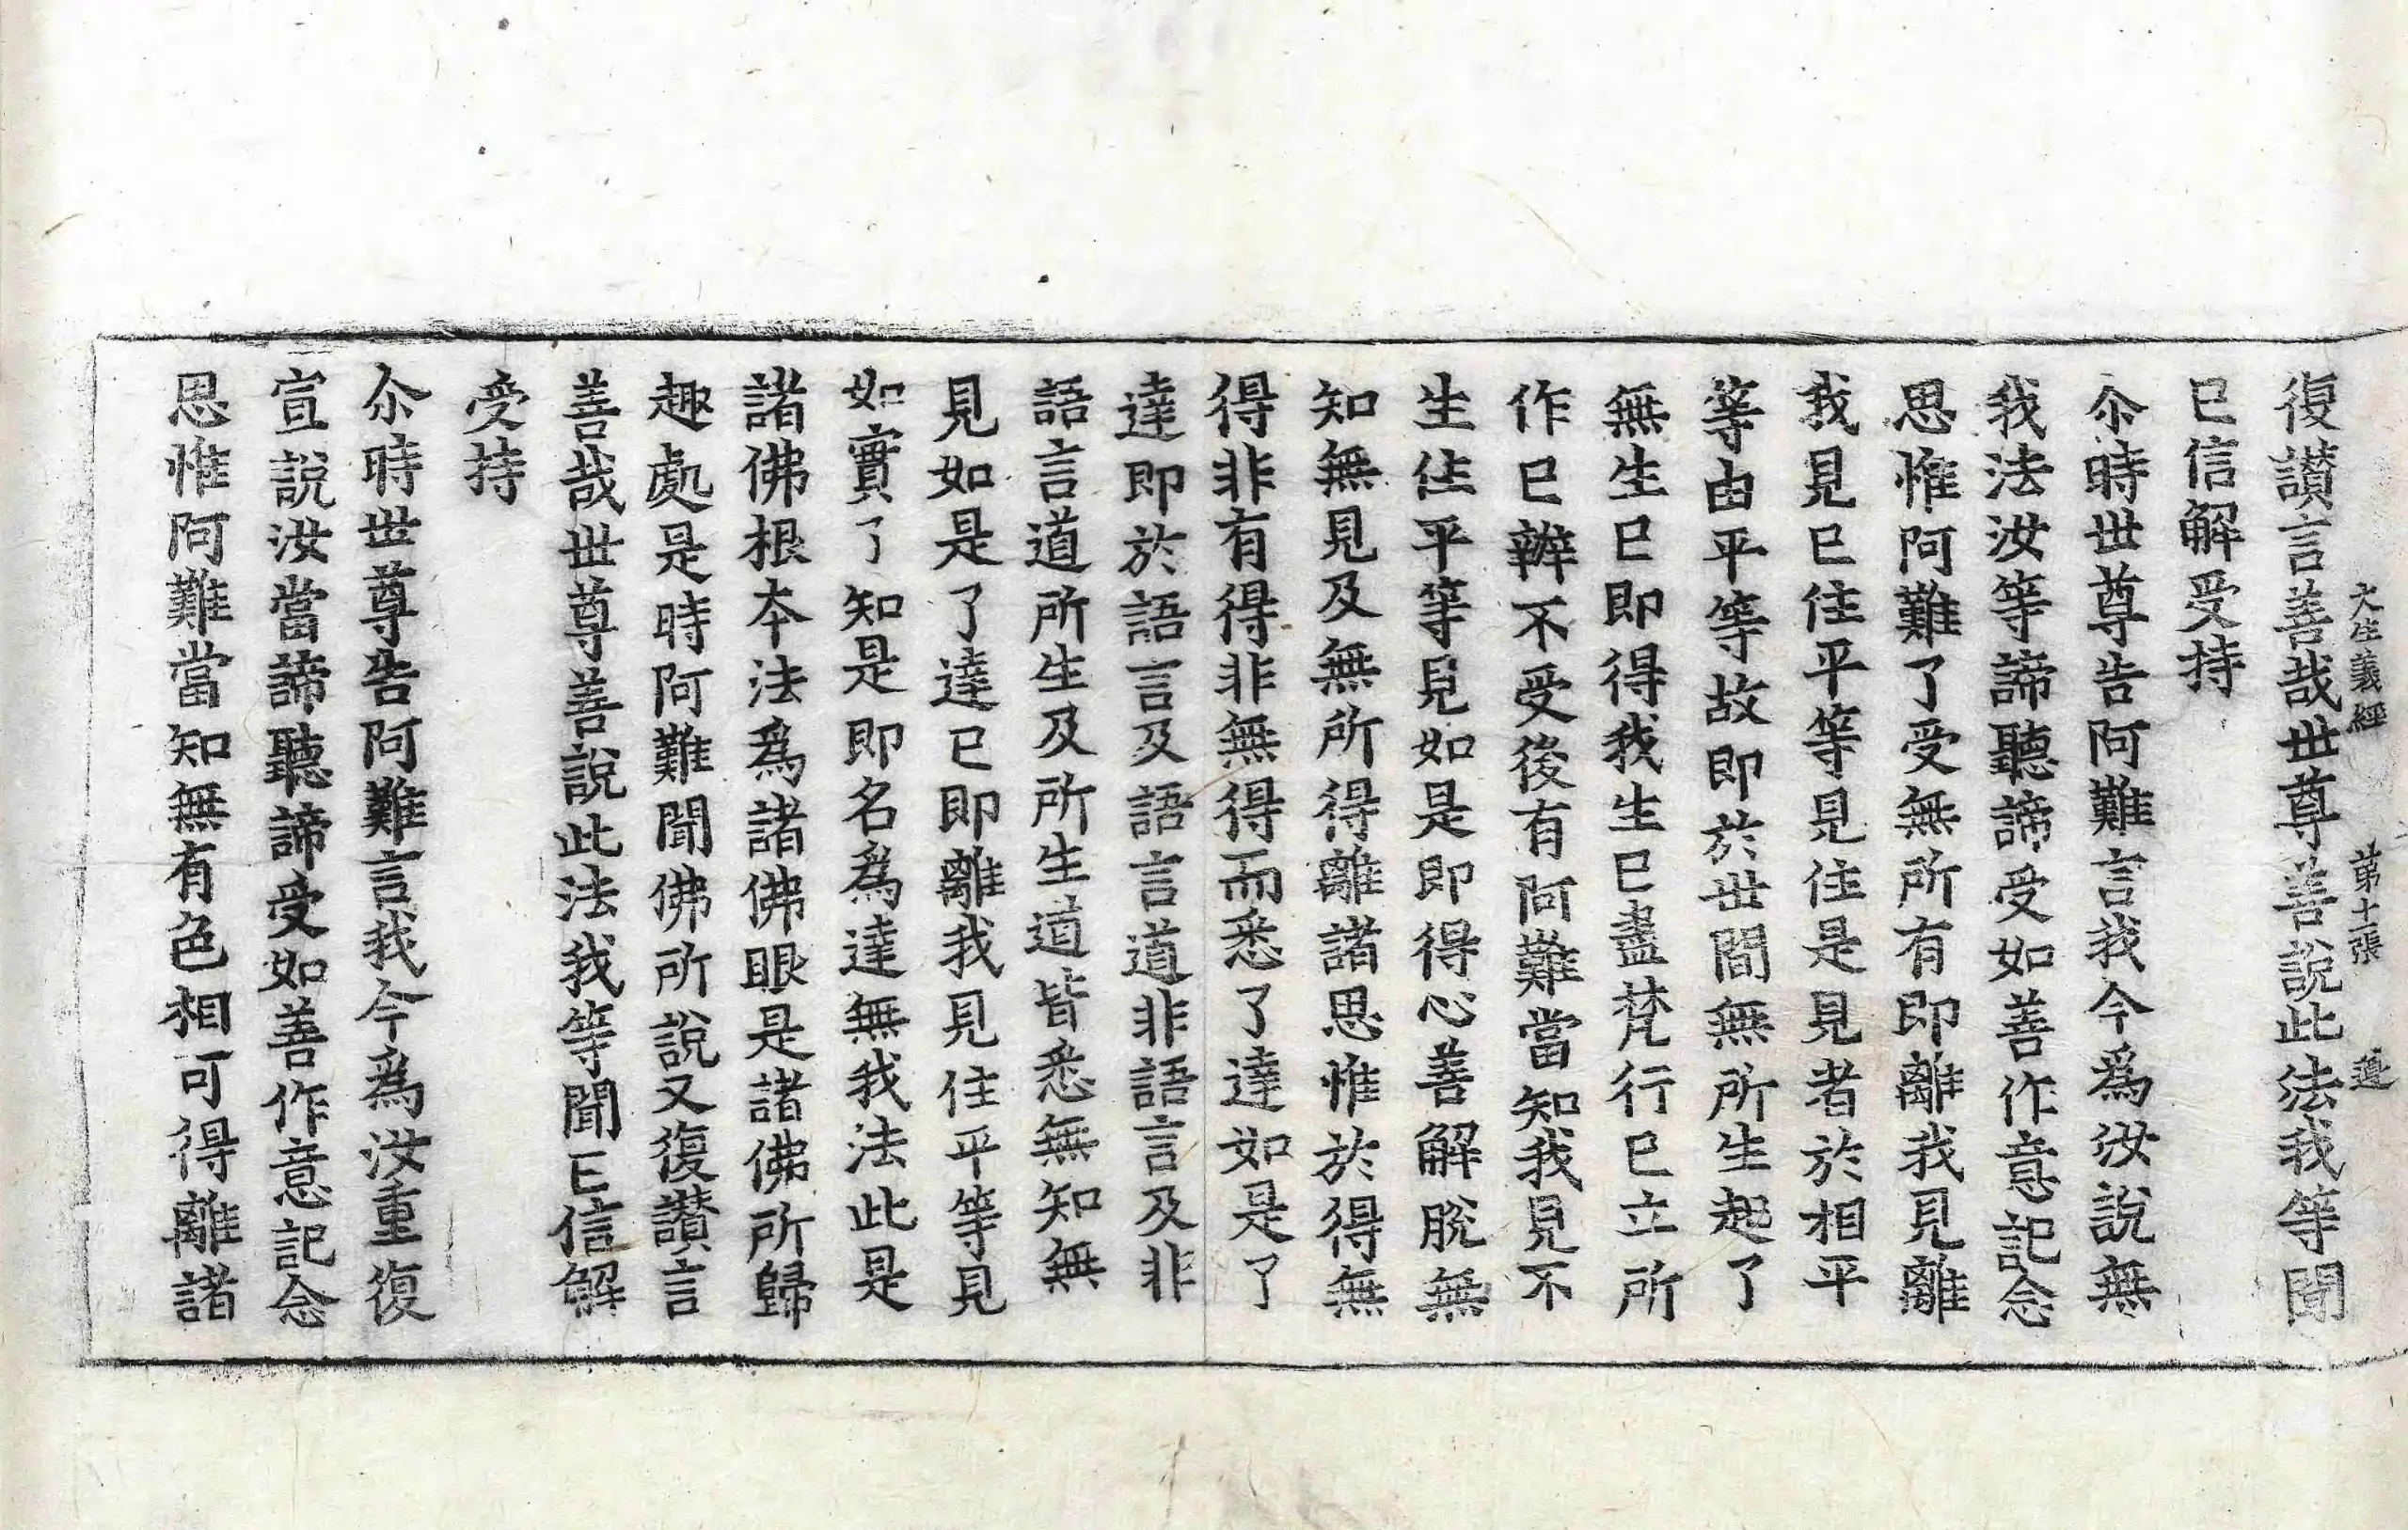 大生義經　第十一張　遵
復讃言善哉世尊善說此法我等聞
已信解受持
尒時世尊告阿難言我今爲汝說無
我法汝等諦聽諦受如善作意記念
思惟阿難了受無所有即離我見離
我見已住平等見住是見者於相平
等由平等故即於世間無所生起了
無生已即得我生已盡梵行已立所
作已辦不受後有阿難當知我見不
生住平等見如是即得心善解脫無
知無見及無所得離諸思惟於得無
得非有得非無得而悉了達如是了
達即於語言及語言道非語言及非
語言道所生及所生道皆悉無知無
見如是了達已即離我見住平等見
如實了知是即名爲達無我法此是
諸佛根本法爲諸佛眼是諸佛所歸
趣處是時阿難聞佛所說又復讃言
善哉世尊善說此法我等聞已信解
受持
尒時世尊告阿難言我今爲汝重復
宣說汝當諦聽諦受如善作意記念
思惟阿難當知無有色相可得離諸